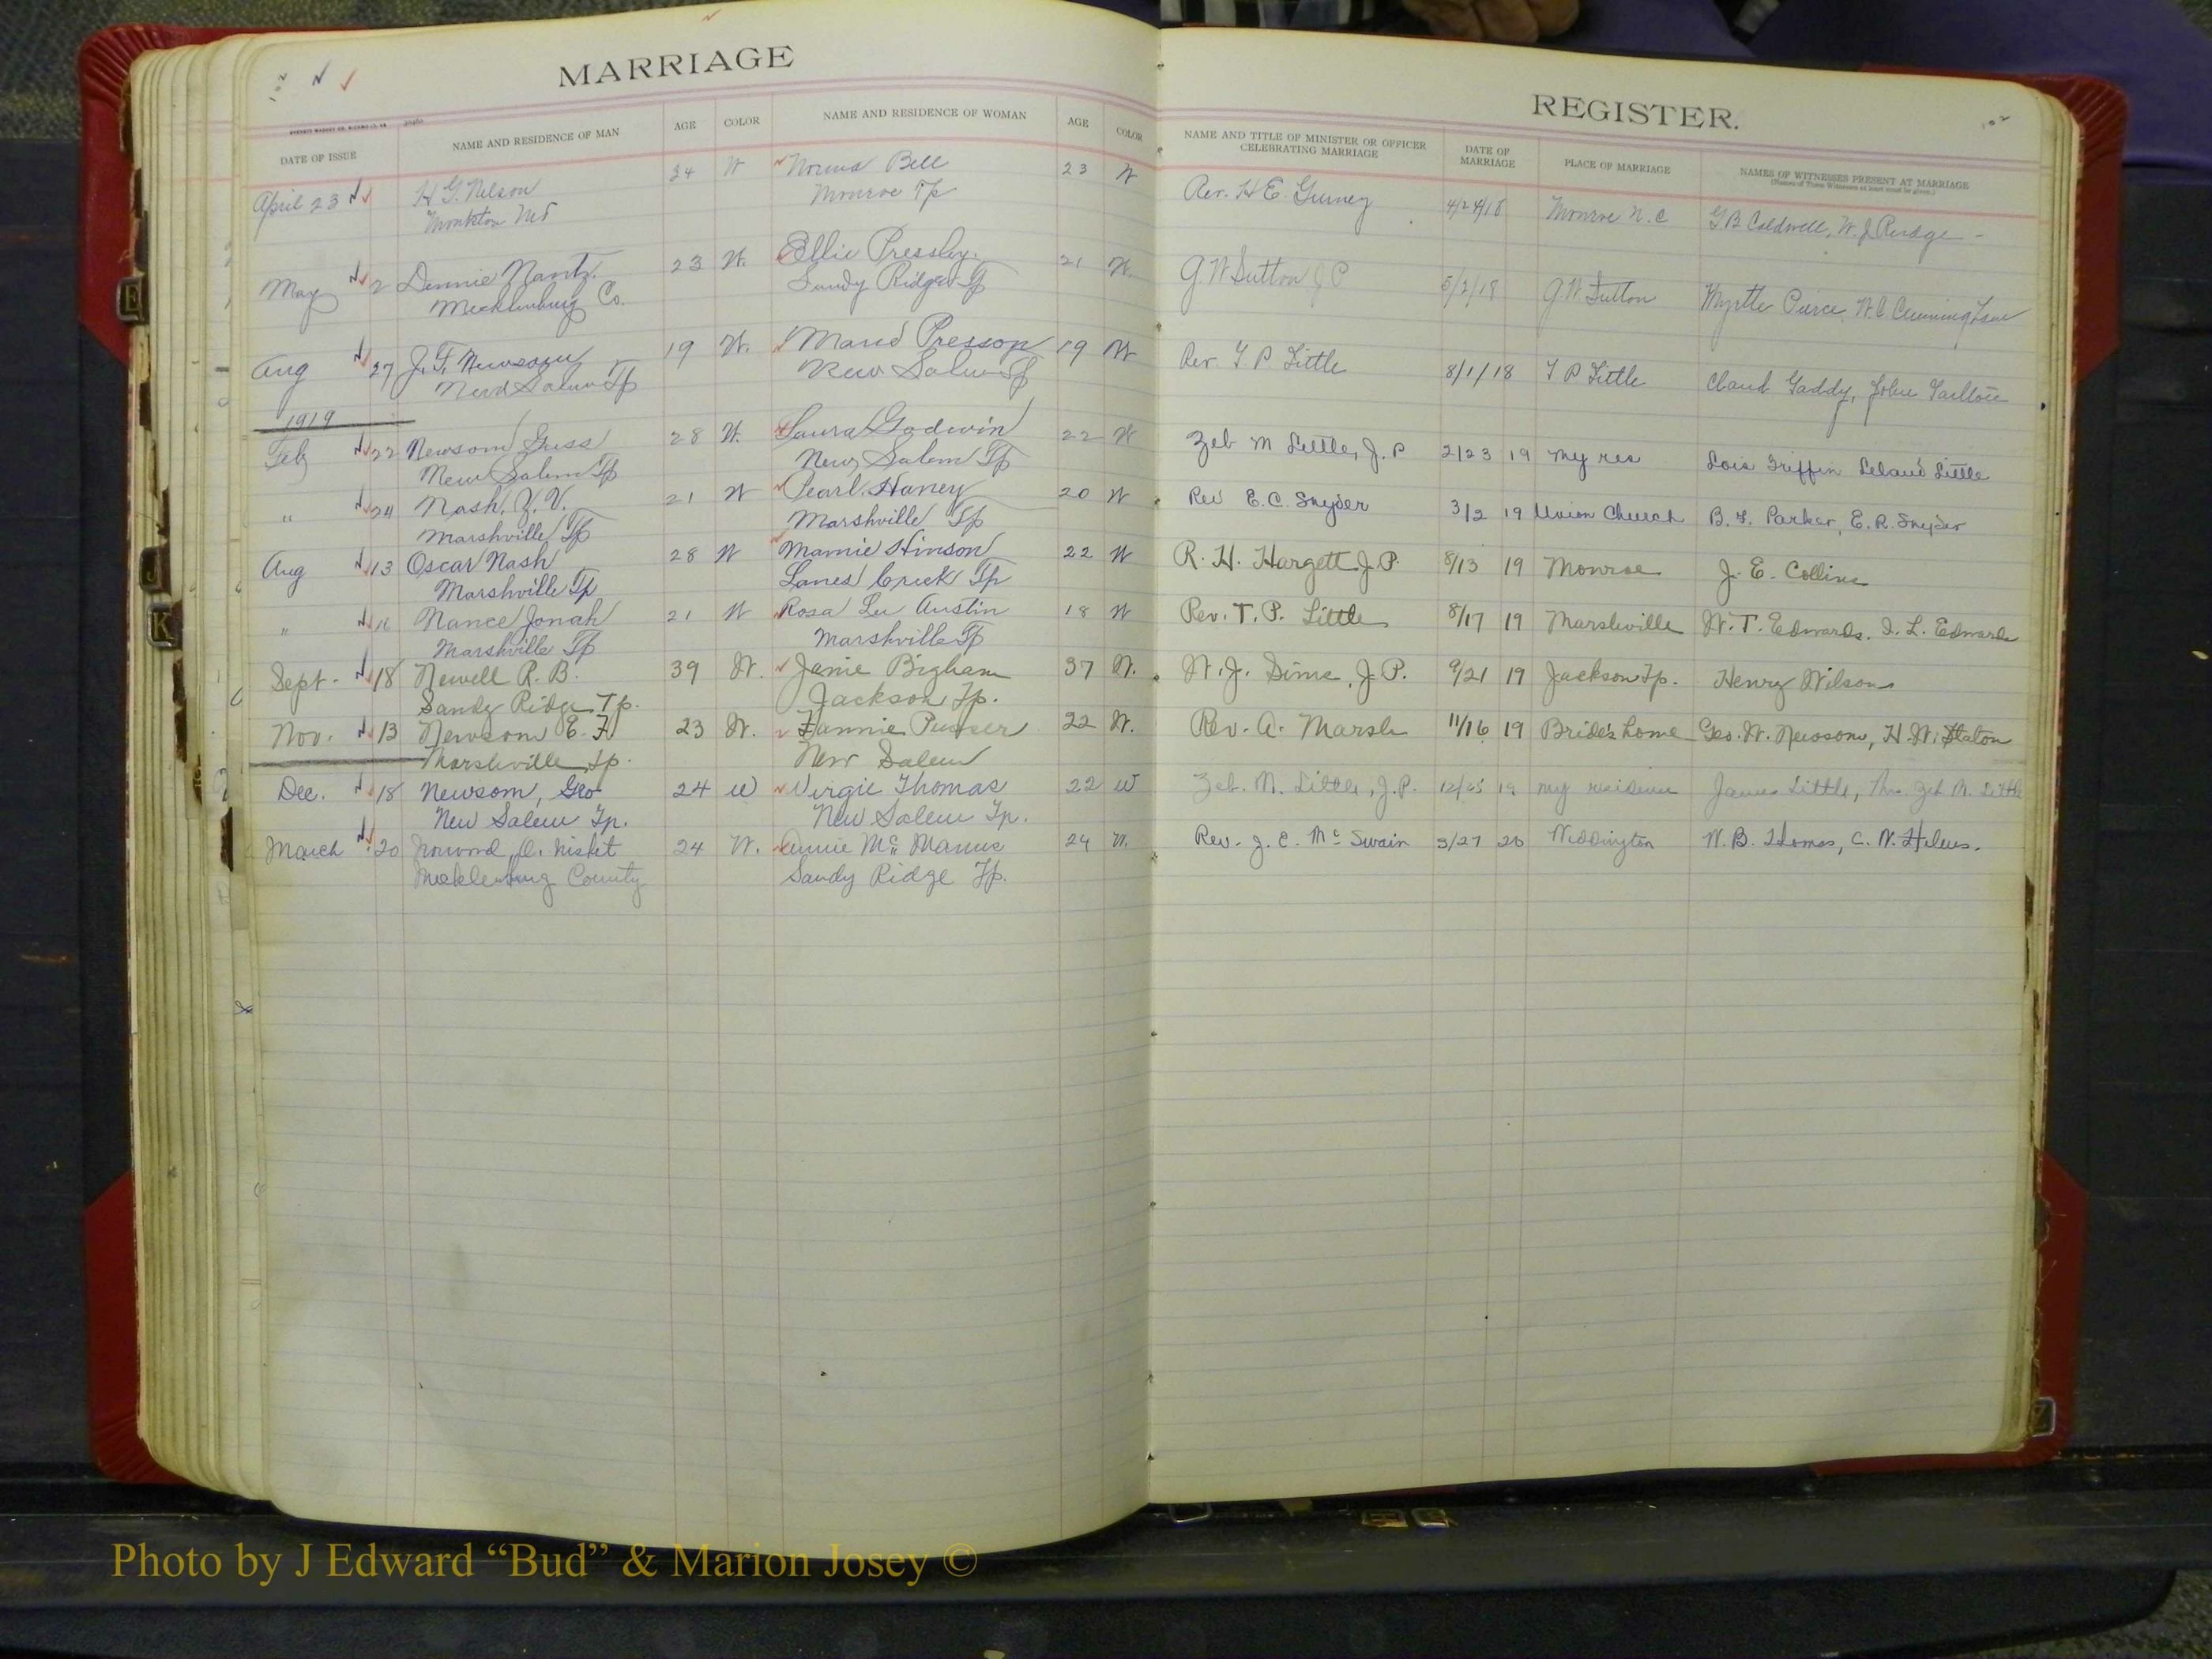 MARRIAGE
REGISTER.
102
DATE OF ISSUE
NAME AND RESIDENCE OF MAN
AGE
COLOR
NAME AND RESIDENCE OF WOMAN
AGE
COLOR
NAME AND TITLE OF MINISTER OR OFFICER
CELEBRATING MARRIAGE
DATE OF
MARRIAGE
PLACE OF MARRIAGE
NAMES OF WITNESSES PRESENT AT MARRIAGE
(Names of Three Witnesses at least must be given.)
April 23 H G. Nelson 24 W Norma Bell 23 W Rev. H E. Gurney 4/24/18 Monroe N. C G B Caldwell, W. J Rudge -
Monkton Md Monroe Tp
May 2 Dennie Nantz. 23 W. Ellie Pressley. 21 W. G W Sutton J P 5/2/18 G W Sutton Myrtle Pierce, W. C. Cunningham
Mecklenburg Co. Sandy Ridge Tp
Aug 27 J. F. Newsom 19 W. Maud Presson 19 W Rev. T P. Little 8/1/18 T P Little Claud Gaddy, John Tarlton
New Salem Tp New Salem Tp
1919
Feb 22 Newsom Guss 28 W. Laura Godwin 22 W Zeb M Little, J. P 2/23 19 My res Lois Griffin Leland Little
New Salem Tp New Salem Tp
" 24 Nash, Z. V. 21 W Pearl Haney 20 W Rev E. C. Snyder 3/2 19 Union Church B. F. Parker, E. R. Snyder
Marshville Tp Marshville Tp
Aug 13 Oscar Nash 28 W Mamie Hinson 22 W R. H. Hargett J. P. 8/13 19 Monroe J. E. Collins
Marshville Tp Lanes Creek Tp
" 16 Nance Jonah 21 W Rosa Lee Austin 18 W Rev. T. P. Little 8/17 19 Marshville W. T. Edwards. I. L. Edwards
Marshville Tp Marshville Tp
Sept. 18 Newell R. B. 39 W. Janie Bigham 37 W. W. J. Sims, J. P. 9/21 19 Jackson Tp. Henry Wilson
Sandy Ridge Tp. Jackson Tp.
Nov. 13 Newsom E. F. 23 W. Fannie Purser 22 W. Rev. A. Marsh 11/16 19 Bride's home Geo. W. Newsom, H. W. Staton
Marshville Tp. New Salem
Dec. 18 Newsom, Geo 24 W Virgie Thomas 22 W Zeb. M. Little, J. P. 12/25 19 my residence James Little, Mrs. Zeb M. Little
New Salem Tp. New Salem Tp.
March 20 Norwood Nisbet 24 W. Annie McManus 24 W. Rev. J. E. McSwain 3/27 20 Weddington W. B. Thomas, C. N. Helms.
Mecklenburg County Sandy Ridge Tp.
E
J
K
Photo by J Edward “Bud” & Marion Josey ©